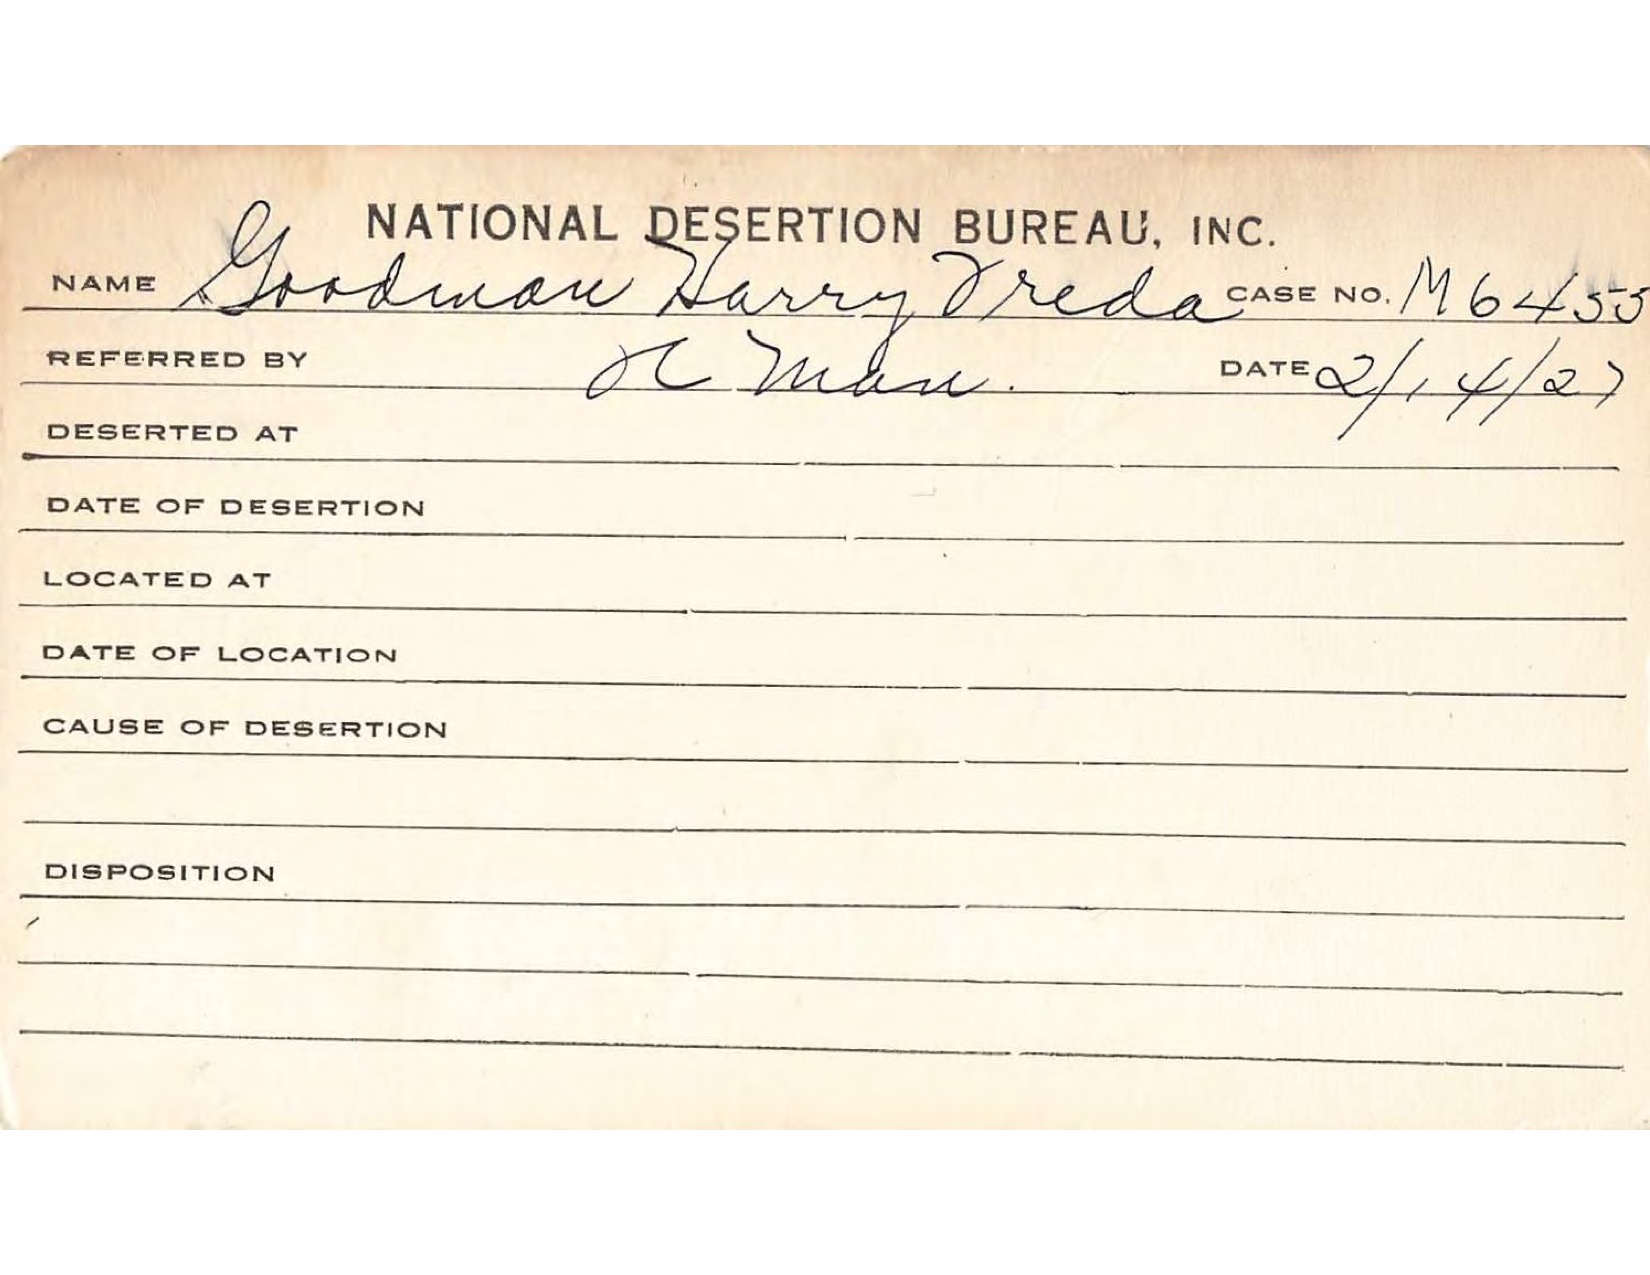 NATIONAL DESERTION BUREAU, INC.
NAME Goodman Harry Freda CASE NO. M6455
REFERRED BY Man. DATE 2/14/27
DESERTED AT
DATE OF DESERTION
LOCATED AT
DATE OF LOCATION
CAUSE OF DESERTION
DISPOSITION